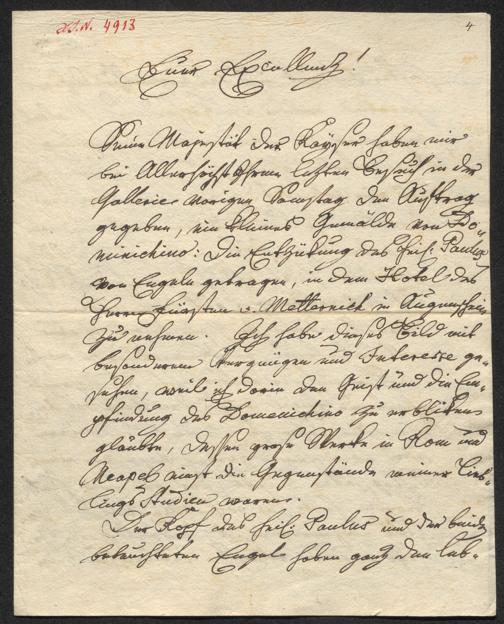 I.N. 4913
4
Euer Excellenz!
Seine Majestät der Kayser haben mir
bei Allerhöchst Ihrem letzten Besuch in der
Gallerie vorigen Samstag den Auftrag
gegeben, ein kleines Gemälde von Do-
minichino: Die Entzükung des heil. Paulus
von Engeln getragen, in dem Hotel des
Herrn Fürsten v. Metternich in Augenschein
zu nehmen. Ich habe dieses Bild mit
besonderem Vergnügen und Interesse ge-
sehen, weil ich darin den Geist und die Em-
pfindung des Domenichino zu erbliken
glaubte, dessen große Werke in Rom und
Neapel einst die Gegenstände meiner Lieb-
lings Studien waren.
Der Kopf des heil: Paulus und der beiden
beleuchteten Engel haben ganz den lieb-